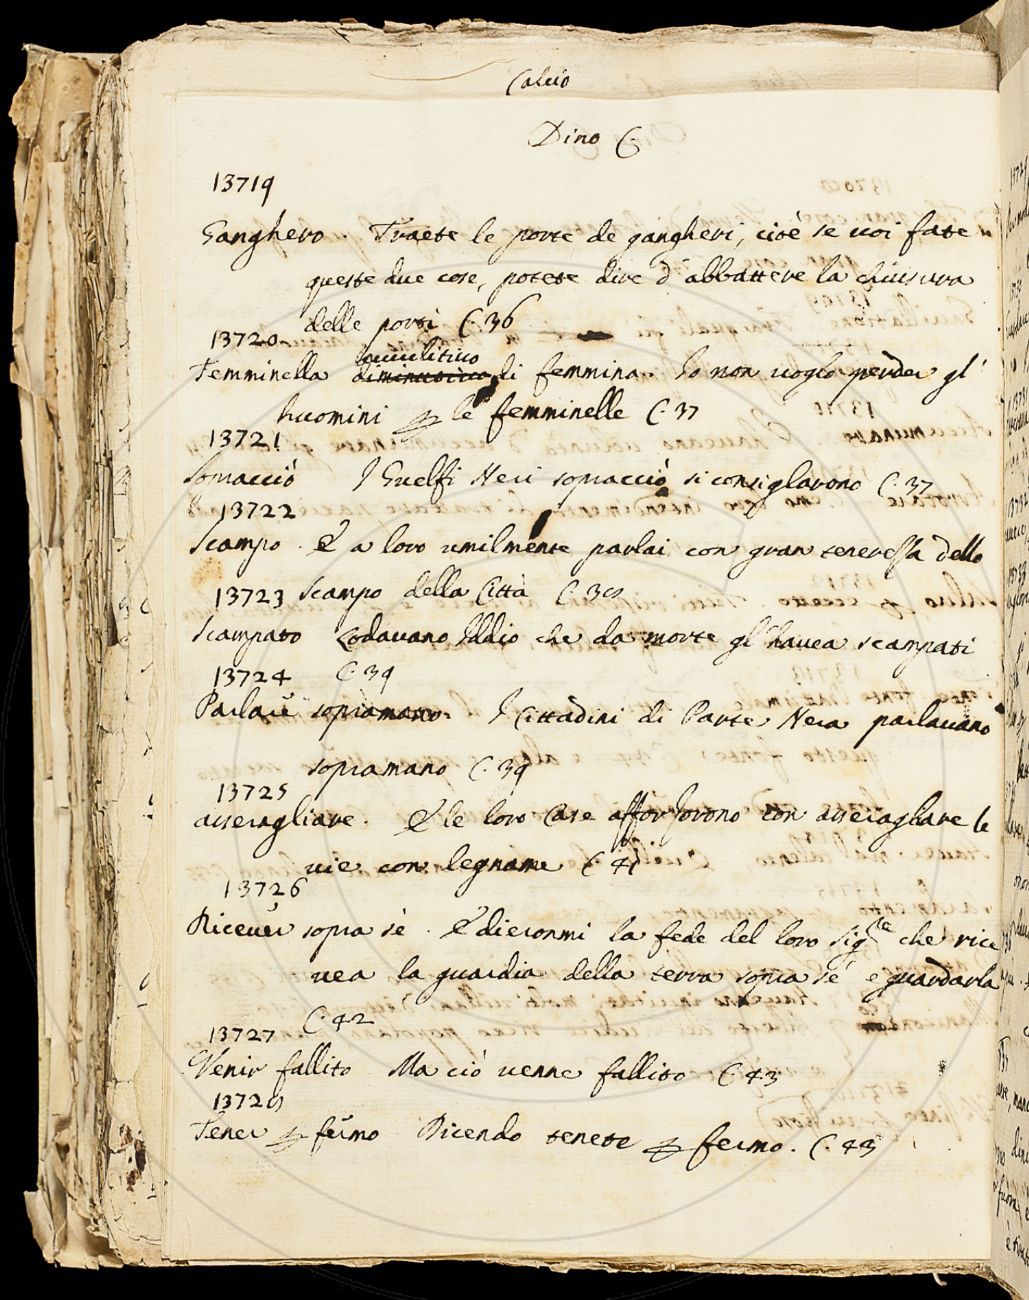 Calcio
Dino C.
13719
Ganghero. Traete le porte de gangheri, cioè se voi fate
queste due cose, potete dire d'abbattere la chiusura
delle porti C. 36
13720
avvilitivo
Femminella diminutivo di femmina. Io non voglo perder gl'
huomini le femminelle C. 37
13721
Sopracciò I Guelfi Neri sopracciò si consiglavono C. 37
13722
Scampo. E a loro umilmente parlai con gran tenerezza dello
scampo della Città C. 38
13723
Scampato Lodavano Iddio che da morte gl'havea scampati
C. 39
13724
Parlare sopramano. I Cittadini di Parte Nera parlavano
sopramano C. 39
13725
asseragliare. E le loro Case afforzorono con asseraglare le
vie con legname C. 41
13726
Ricever sopra sè. E dieronmi la fede del loro Sig.re che rice
vea la guardia della terra sopra sé e guardarla
C. 42
13727
Venir fallito Ma ciò venne fallito C. 43
13728
Tener fermo Dicendo tenete fermo. C. 43